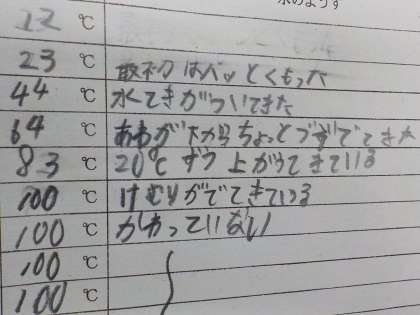 水のようす
12 ℃
23 ℃ 最初はパッとくもった
44 ℃ 水てきがついてきた
64 ℃ あわが下からちょっとづずでてきた
83 ℃ 20℃ずつ上がってきている
100 ℃ けむりがでてきている
100 ℃ かわっていない
100 ℃
100 ℃